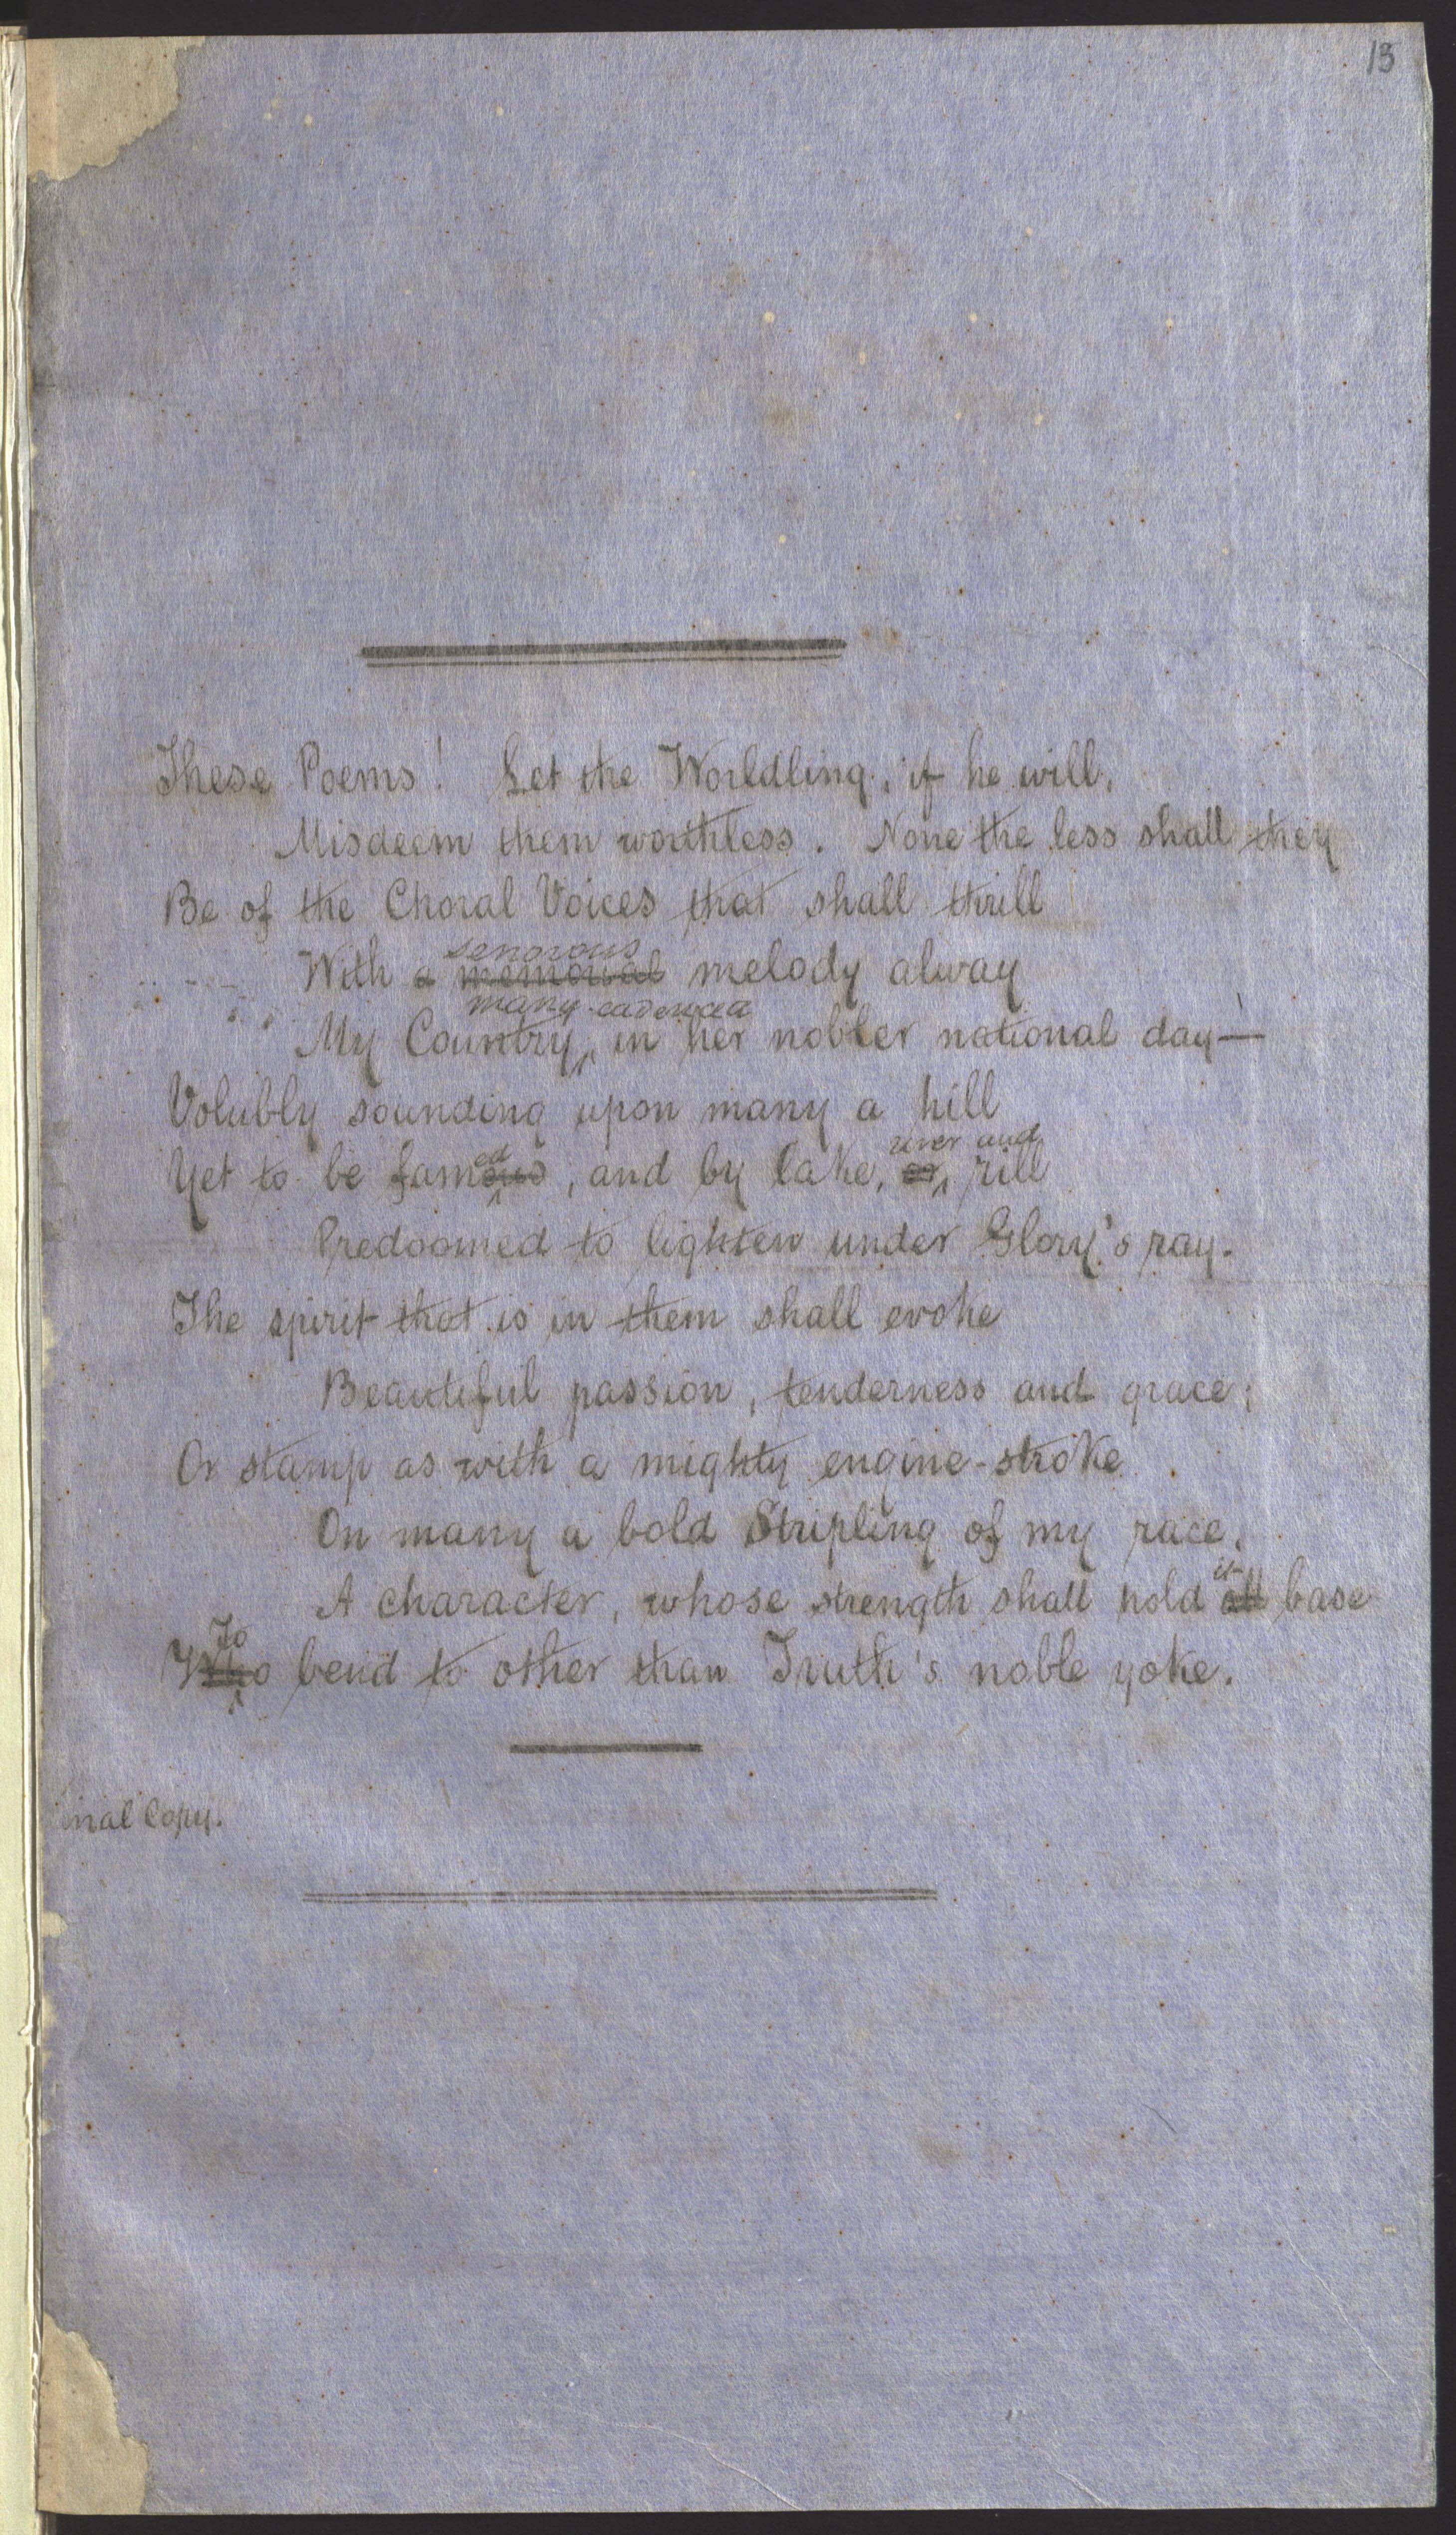 13
These Poems! Let the Worldling, if he will,
Misdeem them worthless. None the less shall they
Be of the Choral Voices that shall thrill
sonorous
With a memorial melody alway
many-cadenced
My Country, in her nobler national day—
Volubly sounding upon many a hill
ed river and
Yet to be famous, and by lake, or rill
Predoomed to lighten under Glory's ray.
The spirit that is in them shall evoke
Beautiful passion, tenderness and grace;
Or stamp as with a mighty engine-stroke
On many a bold Stripling of my race,
it
A character, whose strength shall hold all base
To
Who bend to other than Truth's noble yoke.
inal Copy.